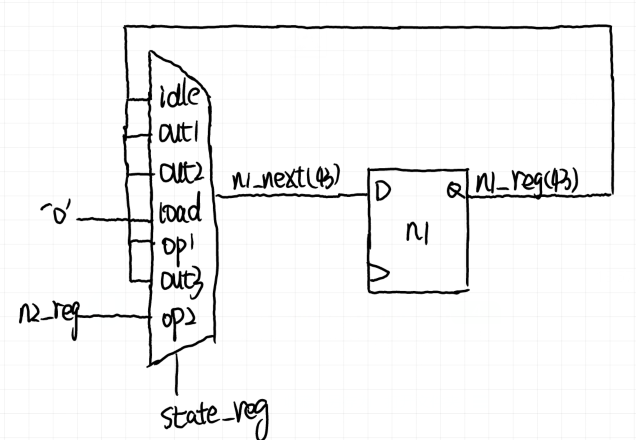 idle
out1
out2
load
op1
out3
op2
'0'
n2_reg
state_reg
n1_next(43)
D
Q
n1
n1_reg(43)